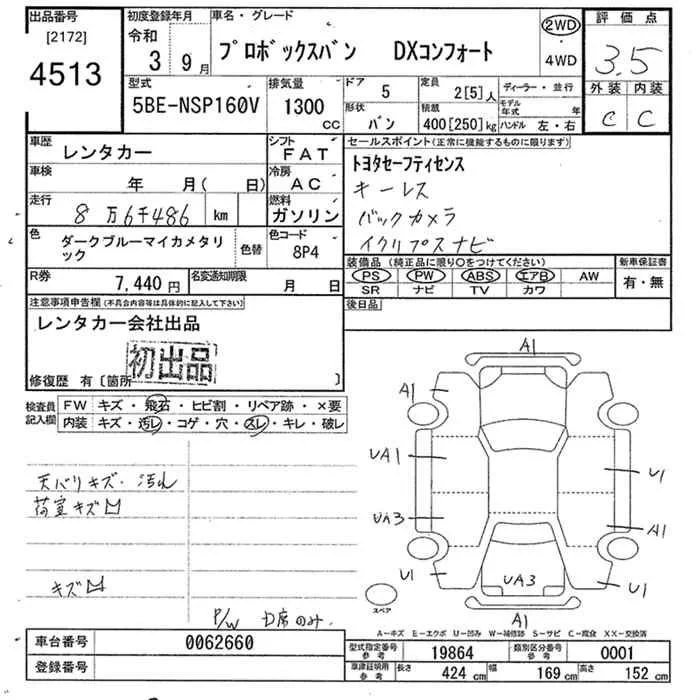 出品番号
[2172]
4513
初度登録年月
令和
3 9月
車名・グレード
プロボックスバン DXコンフォート
2WD
・
4WD
評価点
3.5
外装 内装
C C
型式
5BE-NSP160V
排気量
1300
CC
ドア
5
定員
2[5]人
ディーラー・並行
モデル年式 年
形状
バン
積載
400[250]kg
ハンドル 左・右
車歴
レンタカー
シフト
FAT
車検
年 月( 日)
冷房
AC
走行
8万6千486 km
燃料
ガソリン
色
ダークブルーマイカメタリック
色替
色コード
8P4
R券
7,440円
名変通知期限
月 日
セールスポイント(正常に機能するものに限ります)
トヨタセーフティセンス
キーレス
バックカメラ
イクリプスナビ
装備品(純正品に限り○をつけてください)
PS PW ABS エアB AW
SR ナビ TV カワ
新車保証書
有・無
後日品
注意事項申告欄(不具合内容等は具体的に記入して下さい)
レンタカー会社出品
初出品
修復歴 有〔箇所 〕
検査員記入欄
FW キズ・飛石・ヒビ割・リペア跡・×要
内装 キズ・汚レ・コゲ・穴・スレ・キレ・破レ
天バリキズ・汚れ
荷室キズ
キズ
P/W D席のみ.
A1
A1
UA1
U1
UA3
A1
U1
UA3
U1
A1
スペア
A-キズ E-エクボ U-凹み W-補修跡 S-サビ C-腐食 XX-交換済
車台番号 0062660
登録番号
型式指定番号参考 19864
類別区分番号参考 0001
車庫証明用参考 長さ 424 cm 幅 169 cm 高さ 152 cm